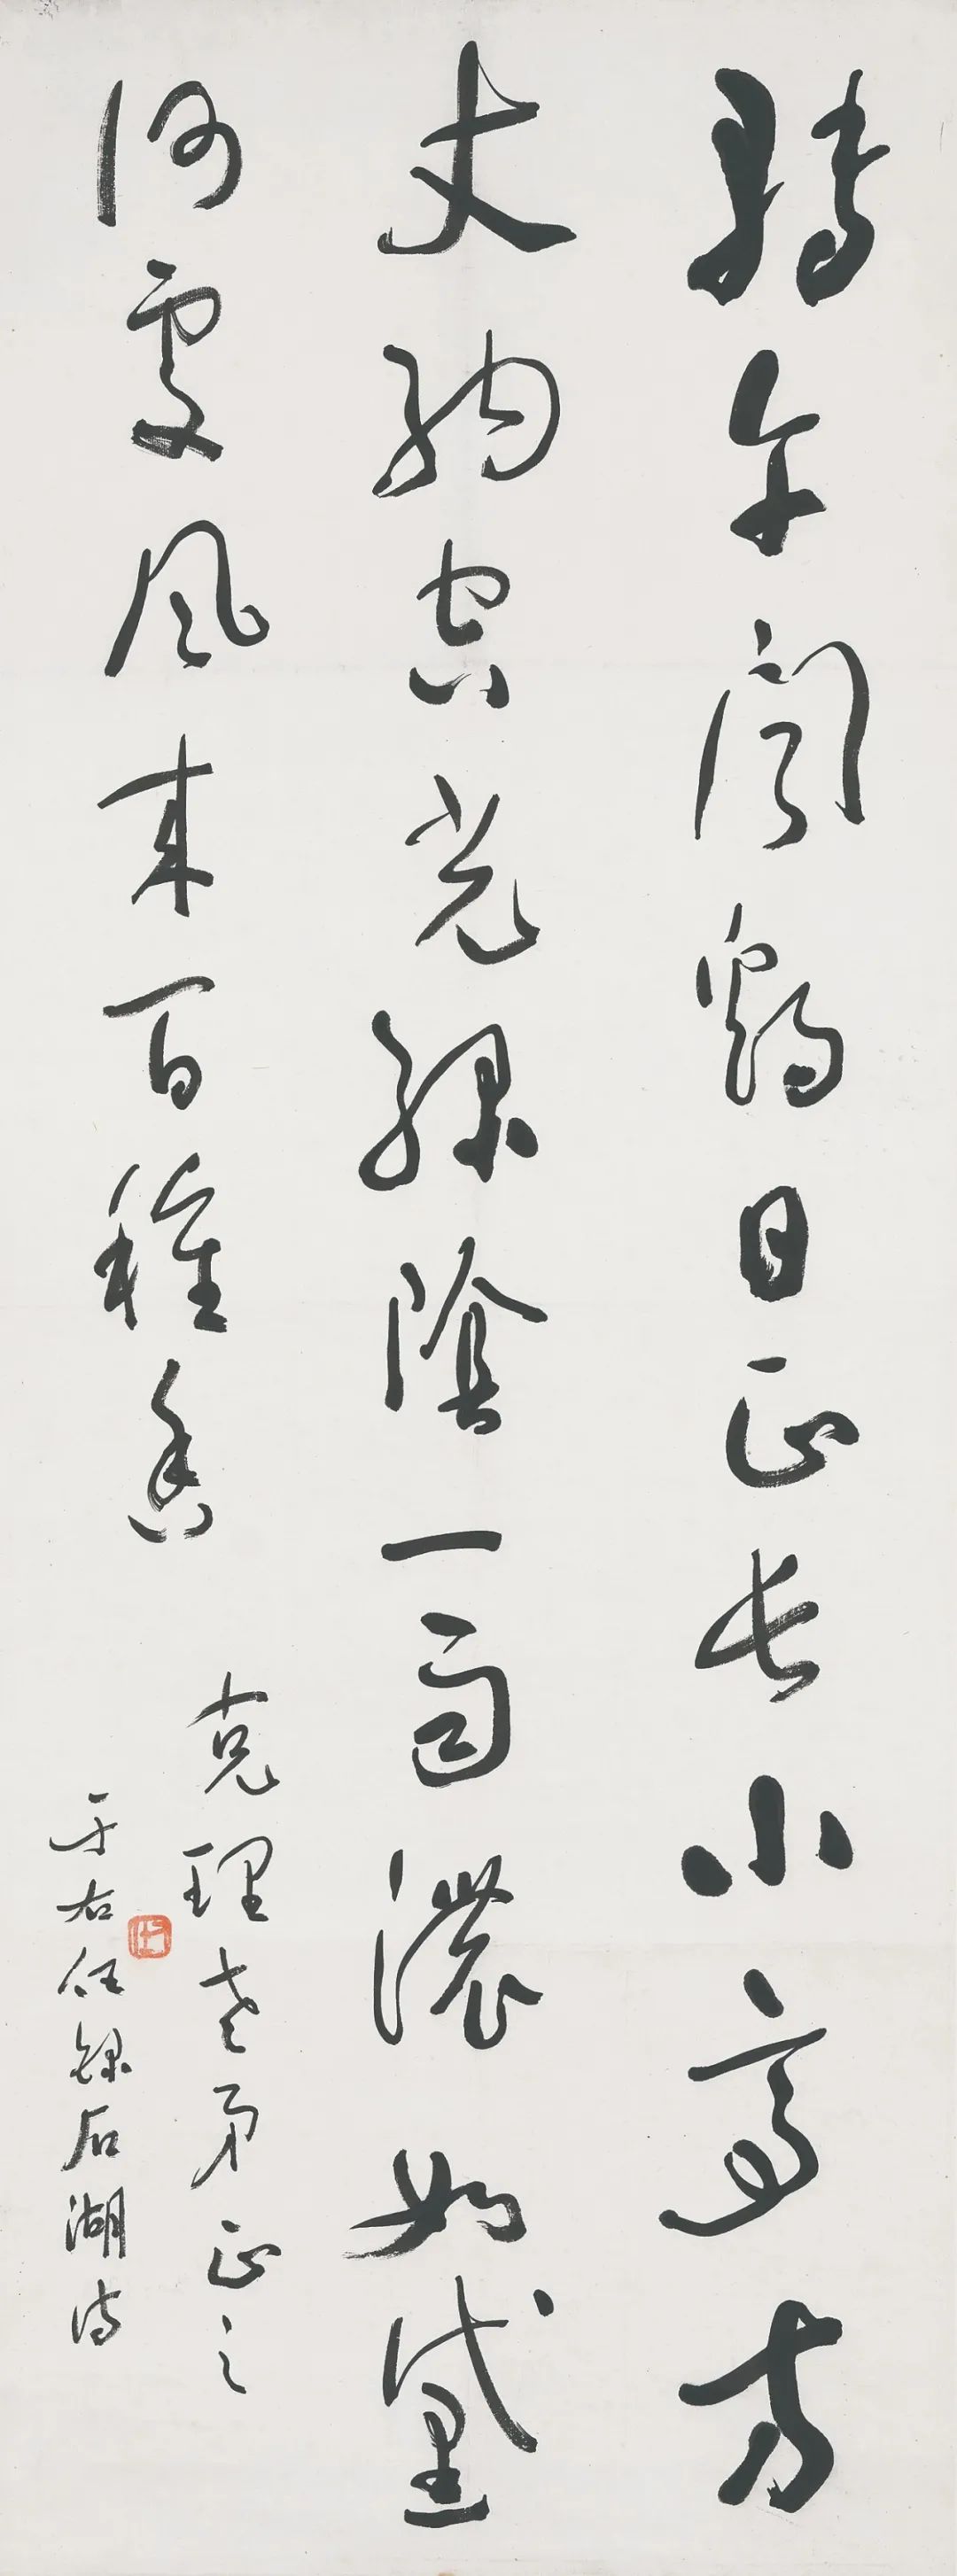 轉午聞雞日正長小亭方
丈納空光綠陰一雨濃如黛
何處風來百種香
克理老弟正之
于右任錄石湖詩